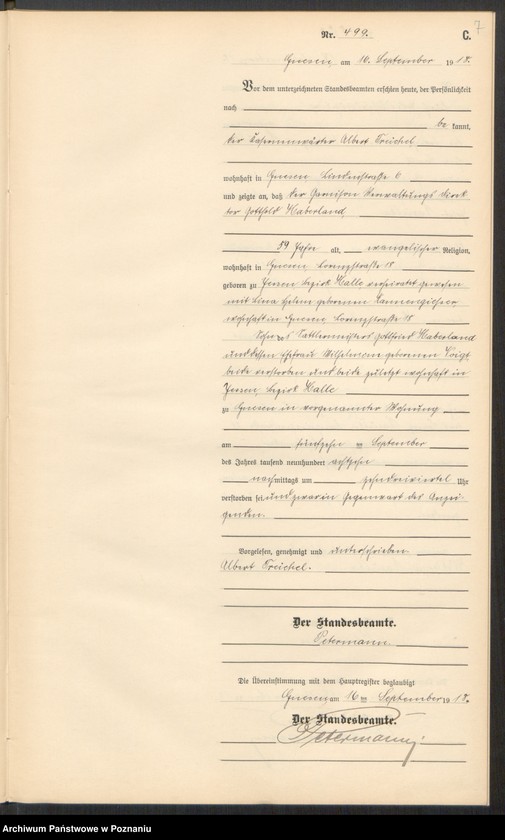 7
Nr. 499. C.
Gnesen, am 16. September 1918.
Vor dem unterzeichneten Standesbeamten erschien heute, der Persönlichkeit
nach
be kannt,
der Kasernenwärter Albert Treichel
wohnhaft in Gnesen Lindenstraße 6
und zeigte an, daß der Garnison Verwaltungs Direk
tor Gottfried Haberland
59 Jahre alt, evangelischer Religion,
wohnhaft in Gnesen Lorenzstraße 18
geboren zu Jessen, Bezirk Halle verheiratet gewesen
mit Lina Helene geborenen
wohnhaft in Gnesen, Lorenzstraße 18
Sohn des Sattlermeisters Gottfried Haberland
und dessen Ehefrau Wilhelmine geborenen Voigt
beide verstorben und beide zuletzt wohnhaft in
Jessen, Bezirk Halle
zu Gnesen in vorgenannter Wohnung
am fünfzehn ten September
des Jahres tausend neunhundert achtzehn
nachmittags um zehndreiviertel Uhr
verstorben sei und zwar in Gegenwart des Anzei-
genden.
Vorgelesen, genehmigt und unterschrieben
Albert Treichel.
Der Standesbeamte.
Petermann
Die Übereinstimmung mit dem Hauptregister beglaubigt
Gnesen, am 16 ten September 1918.
Der Standesbeamte.
Petermann
Archiwum Państwowe w Poznaniu